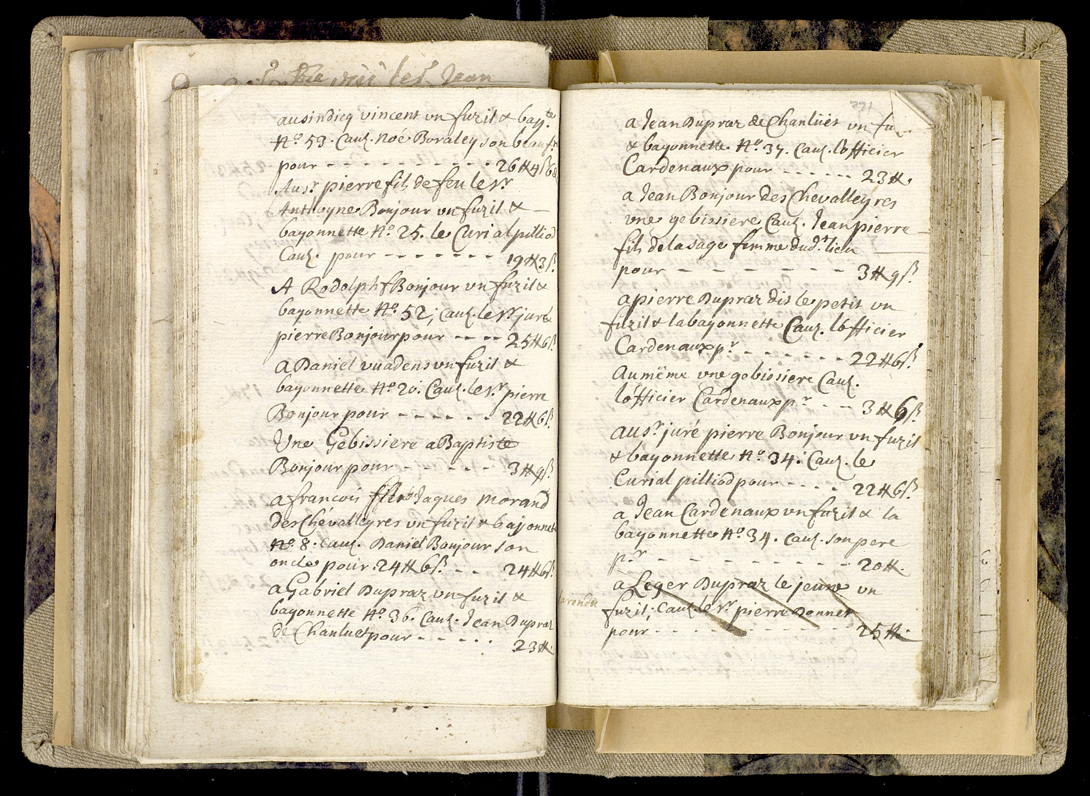 au sindicq vincent un fuzil & bayte
No. 53. Cauz. Noé Boraley son beaufr
pour - - - - - - - - 26 # 4 ß 6
Au sr. pierre fils de feu le sr.
Anthoyne Bonjour un fuzil &
bayonnette No. 25. le Curial pilliod
Cauz. pour - - - - - - - 19 # 3 ß.
A Rodolph Bonjour un fuzil &
bayonnette No. 52; Cauz. le sr. juré
pierre Bonjour pour - - - - 25 # 6 ß.
a Daniel vuadens un fuzil &
bayonnette No. 20. Cauz. le sr. pierre
Bonjour pour - - - - - - 22 # 6 ß.
Une Gebissiere a Baptiste
Bonjour pour - - - - - - 3 # 9 ß
a francois fils de Jaques morand
des Chevalleyres un fuzil & bajonnet
No. 8. cauz. Daniel Bonjour son
oncle pour 24 # 6 ß. - - - 24 # 6 ß.
a Gabriel Dupraz un fuzil &
bayonnette No. 36. Cauz. Jean Dupraz
de Chanluet pour - - - - - - 23 #.
271
a Jean Dupraz de Chanlüet un fu
& bayonnette No. 37. Cauz. l'officier
Cardenaux pour - - - - - - 23 #.
a Jean Bonjour des Chevalleyres
une gebissiere Cauz. Jean pierre
fils de la sage femme dud.t lieu
pour - - - - - - - - - 3 # 9 ß.
a pierre Dupraz dis le petit un
fuzil & la bayonnette Cauz. l'officier
Cardenaux pr. - - - - - - 22 # 6 ß.
Au même une gebissiere Cauz.
l'officier Cardenaux pr. - - - 3 # 6 ß
au sr. juré pierre Bonjour un fuzil
& bayonnette No. 34. Cauz. le
Curial pilliod pour - - - - 22 # 6 ß.
a Jean Cardenaux un fuzil & la
bayonnette No. 34. cauz. son pere
pr. - - - - - - - - - - 20 #.
a Leger Dupraz le jeune un
fuzil; Cauz. le sr. pierre Bonnet
pour - - - - - - - - - 25 #.